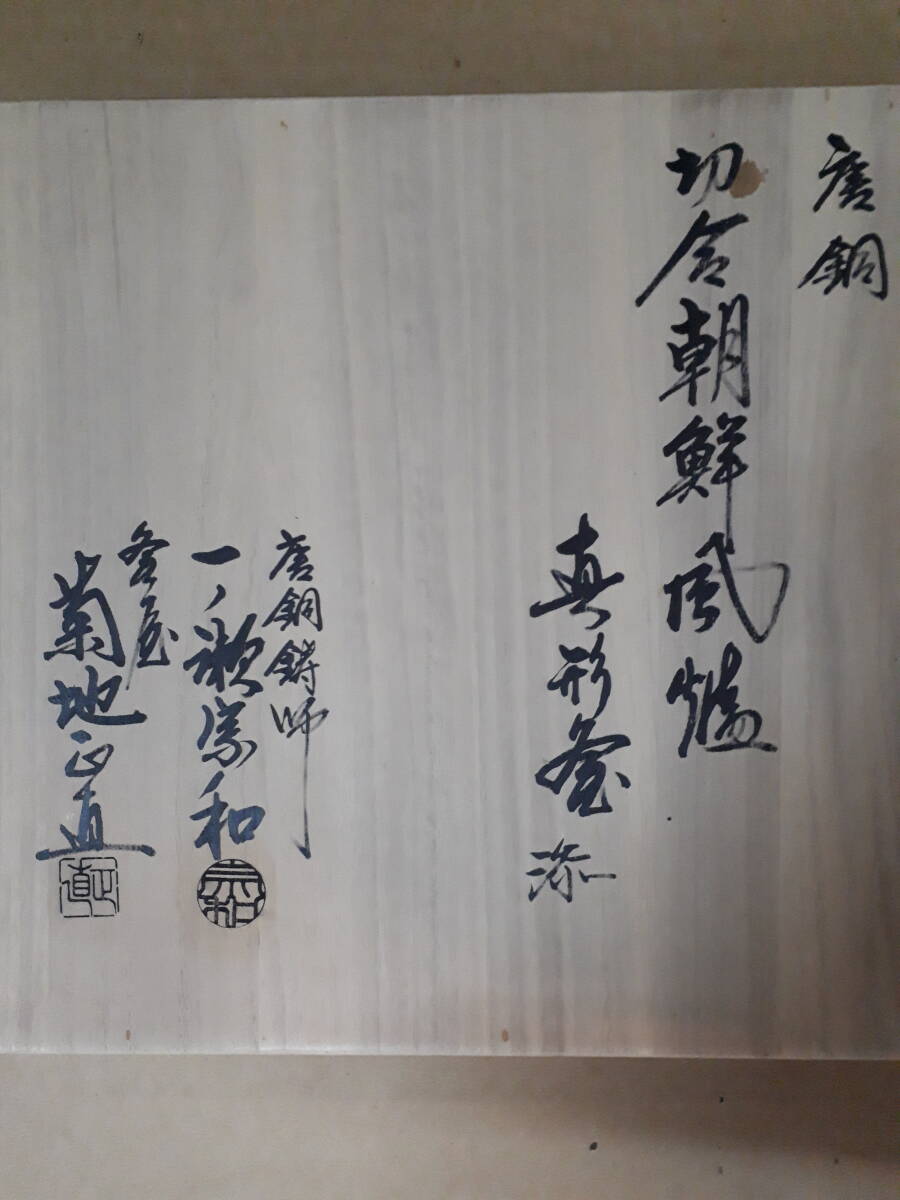 唐銅
切合朝鮮風爐
真形釜 添
唐銅鋳師
一ノ瀬宗和
宗和
釜屋
菊地正直
正直